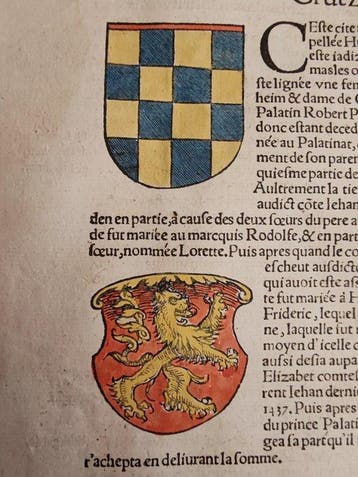 C Este cite
pellée H
este iadiz
masles o
ste lignée vne fem
heim & dame de C
Palatin Robert P
donc estant deced
née au Palatinat,
ment de son paren
quiesme partie de
Aultrement la tie
audict cõte Iehan
den en partie, à cause des deux sœurs du pere a
de fut mariée au marcquis Rodolfe, & en part
sœur, nommée Lorette. Puis apres quand le co
escheut ausdicts
qui auoit este as
te fut mariée à F
Frideric, lequel
ne, laquelle fut
moyen d'icelle c
aussi desia aupa
Elizabet comtes
rent Iehan derni
1437. Puis apres
du prince Palati
gea sa part qu'il
r'achepta en deliurant la somme.